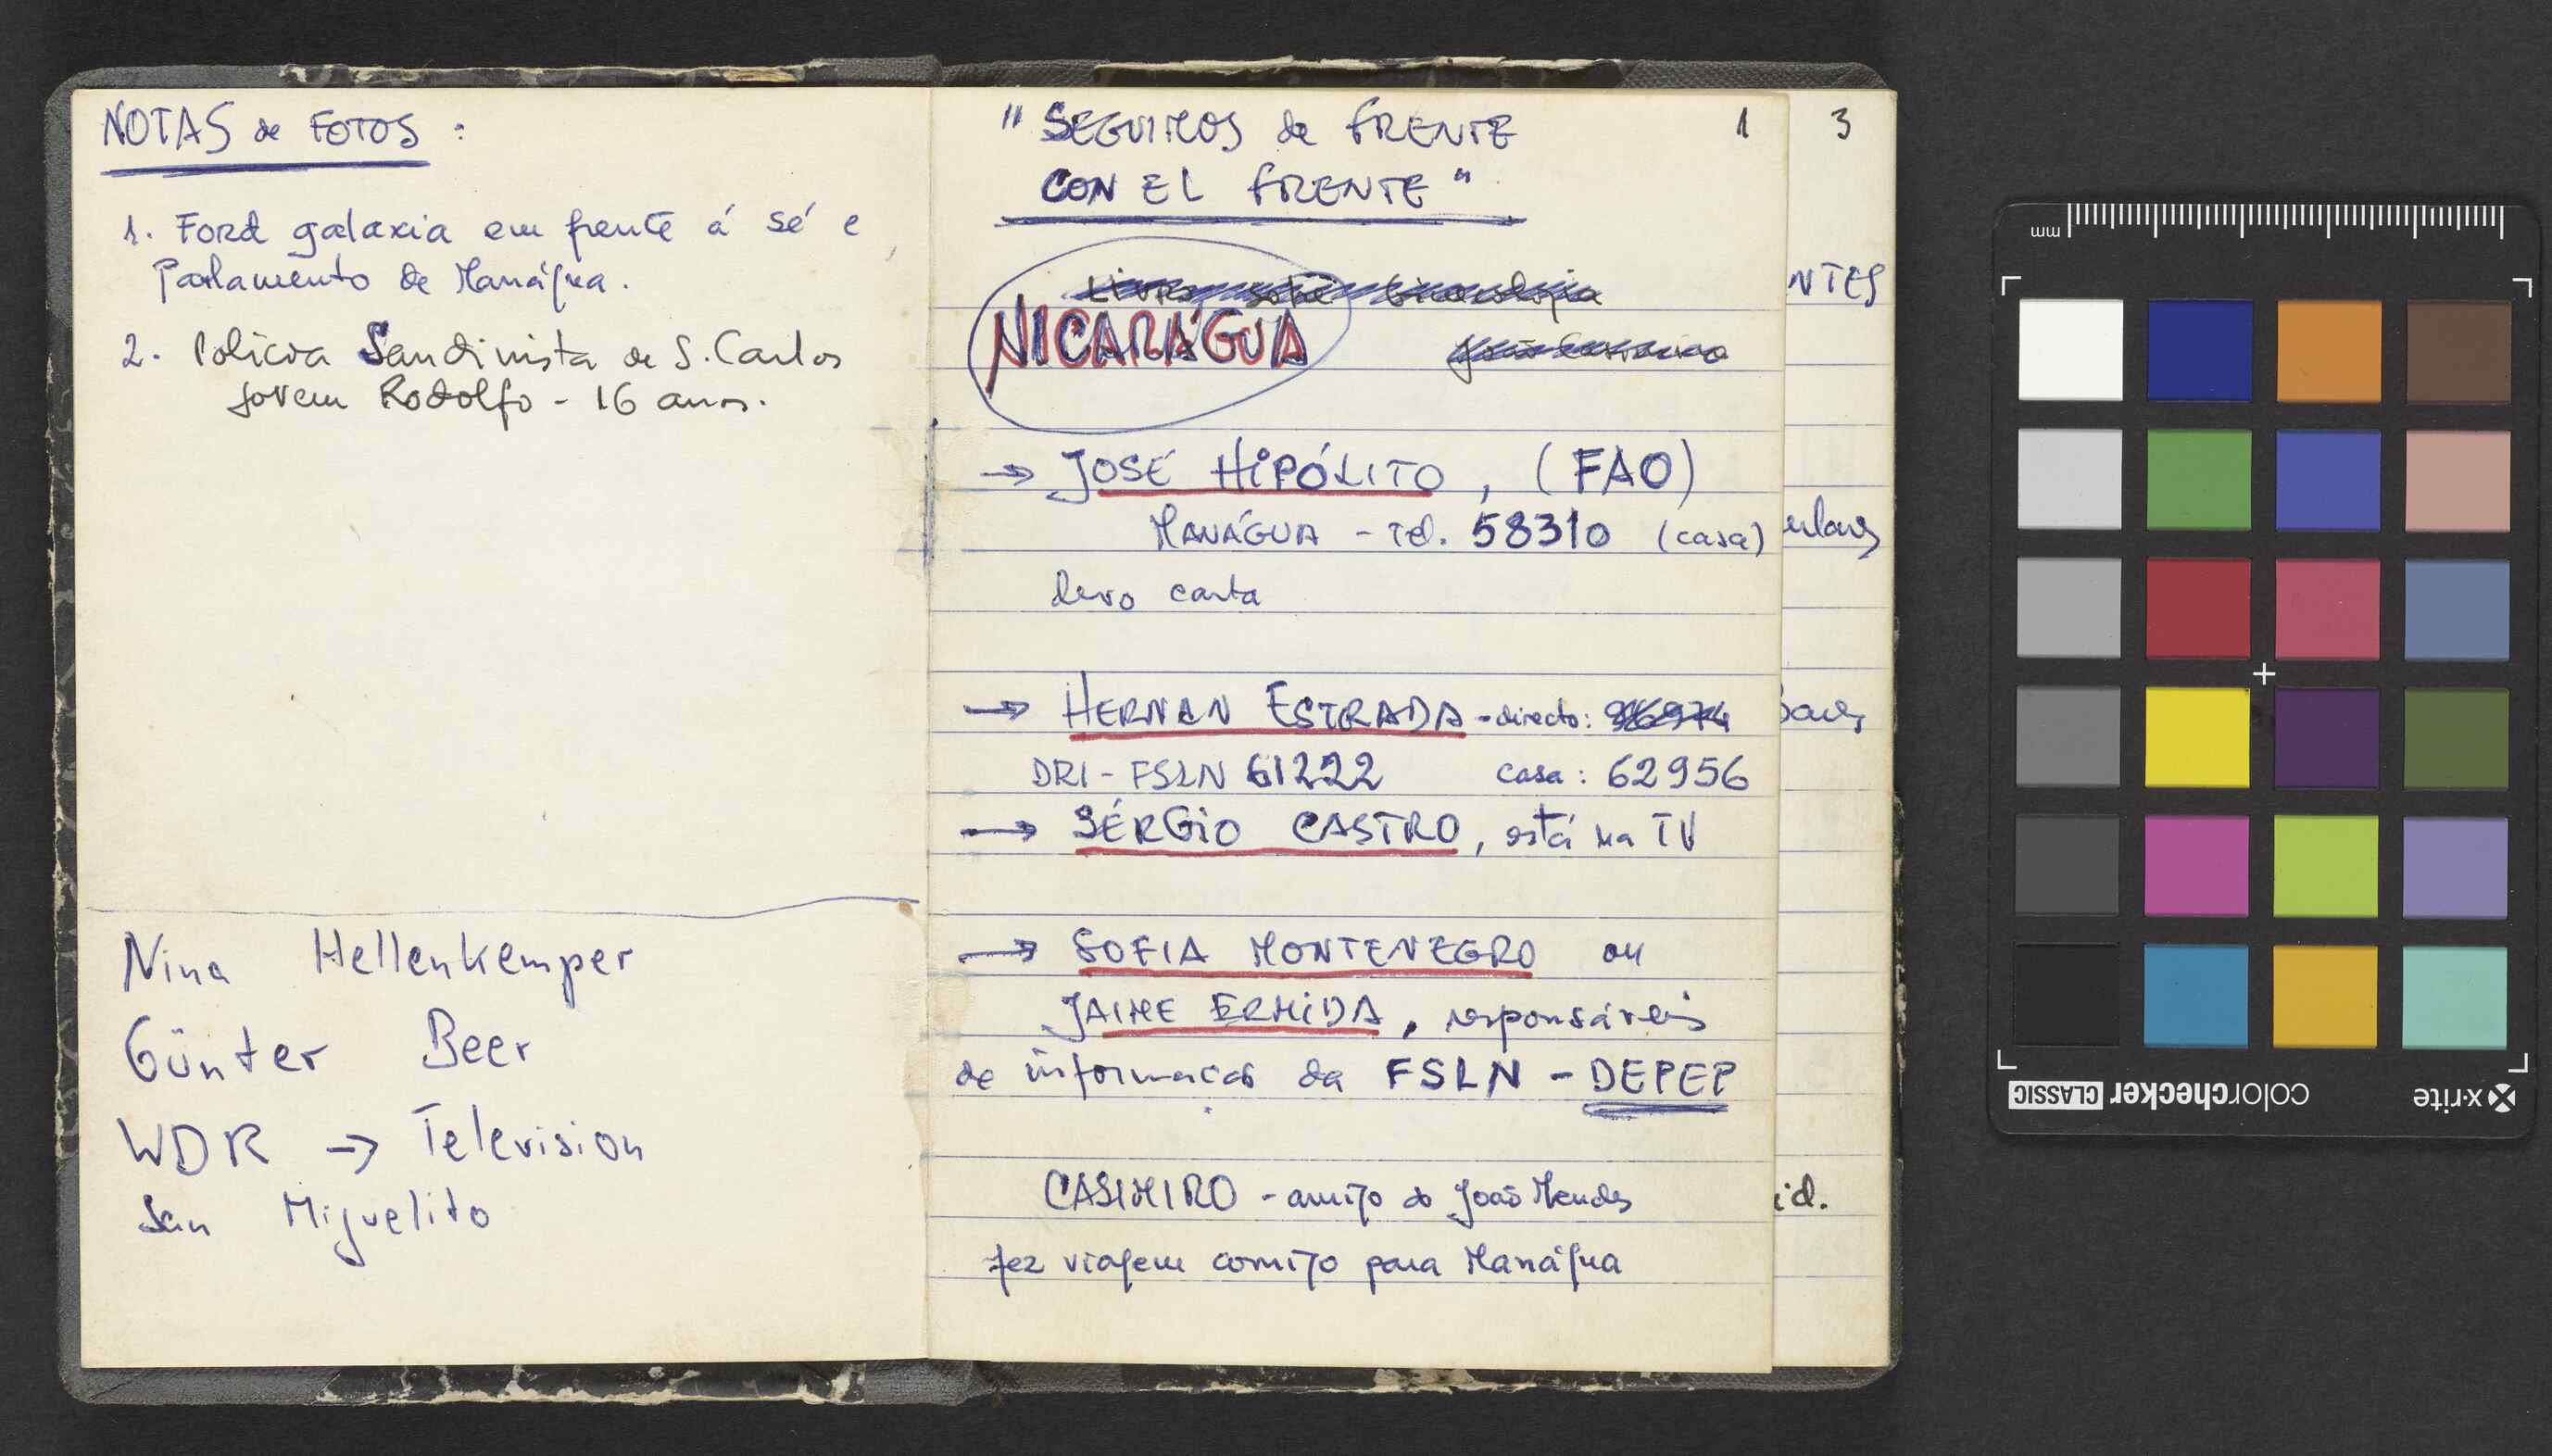 NOTAS de FOTOS :
1. Ford galaxia em frente á sé e
Parlamento de Manágua.
2. Polícia Sandinista de S. Carlos
Jovem Rodolfo - 16 anos.
Nina Hellenkemper
Günter Beer
WDR → Television
San Miguelito
1
"SEGUIMOS de FRENTE
CON EL FRENTE"
Livro sobre
NICARÁGUA
João
→ JOSÉ HIPÓLITO, (FAO)
MANÁGUA - Tel. 58310 (casa)
levo carta
→ HERNAN ESTRADA - directo: 
DRI - FSLN 61222 casa: 62956
→ SÉRGIO CASTRO, está na TV
→ SOFIA MONTENEGRO ou
JAIME ERMIDA, responsáveis
de informacão da FSLN - DEPEP
CASIMIRO - amigo do João Mendes
fez viagem comigo para Manágua
3
NTES
id.
mm
colorchecker CLASSIC
x-rite